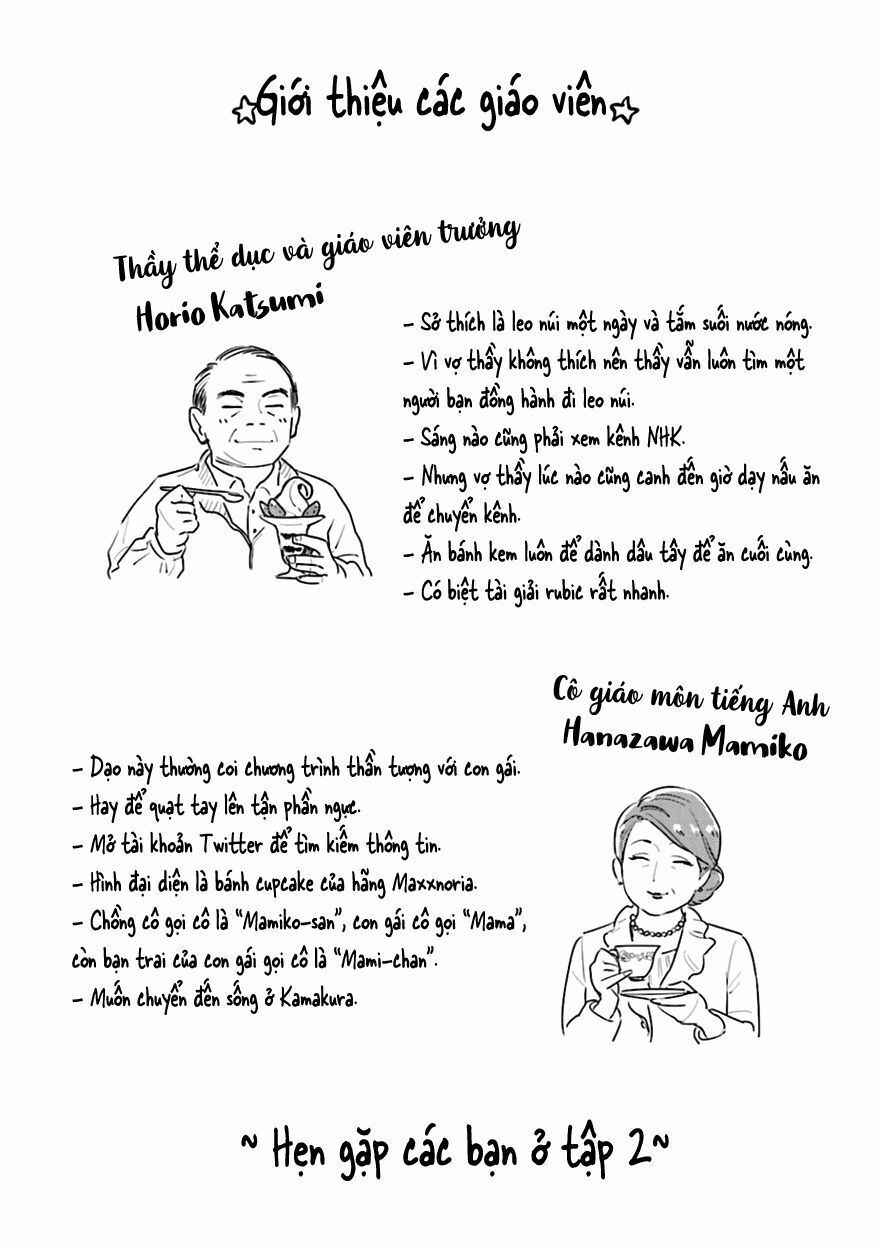 Giới thiệu các giáo viên
Thầy thể dục và giáo viên trưởng
Horio Katsumi
- Sở thích là leo núi một ngày và tắm suối nước nóng.
- Vì vợ thầy không thích nên thầy vẫn luôn tìm một
người bạn đồng hành đi leo núi.
- Sáng nào cũng phải xem kênh NHK.
- Nhưng vợ thầy lúc nào cũng canh đến giờ dạy nấu ăn
để chuyển kênh.
- Ăn bánh kem luôn để dành dâu tây để ăn cuối cùng.
- Có biệt tài giải rubic rất nhanh.
Cô giáo môn tiếng Anh
Hanazawa Mamiko
- Dạo này thường coi chương trình thần tượng với con gái.
- Hay để quạt tay lên tận phần ngực.
- Mở tài khoản Twitter để tìm kiếm thông tin.
- Hình đại diện là bánh cupcake của hãng Maxxnoria.
- Chồng cô gọi cô là "Mamiko-san", con gái cô gọi "Mama",
còn bạn trai của con gái gọi cô là "Mami-chan".
- Muốn chuyển đến sống ở Kamakura.
~ Hẹn gặp các bạn ở tập 2~